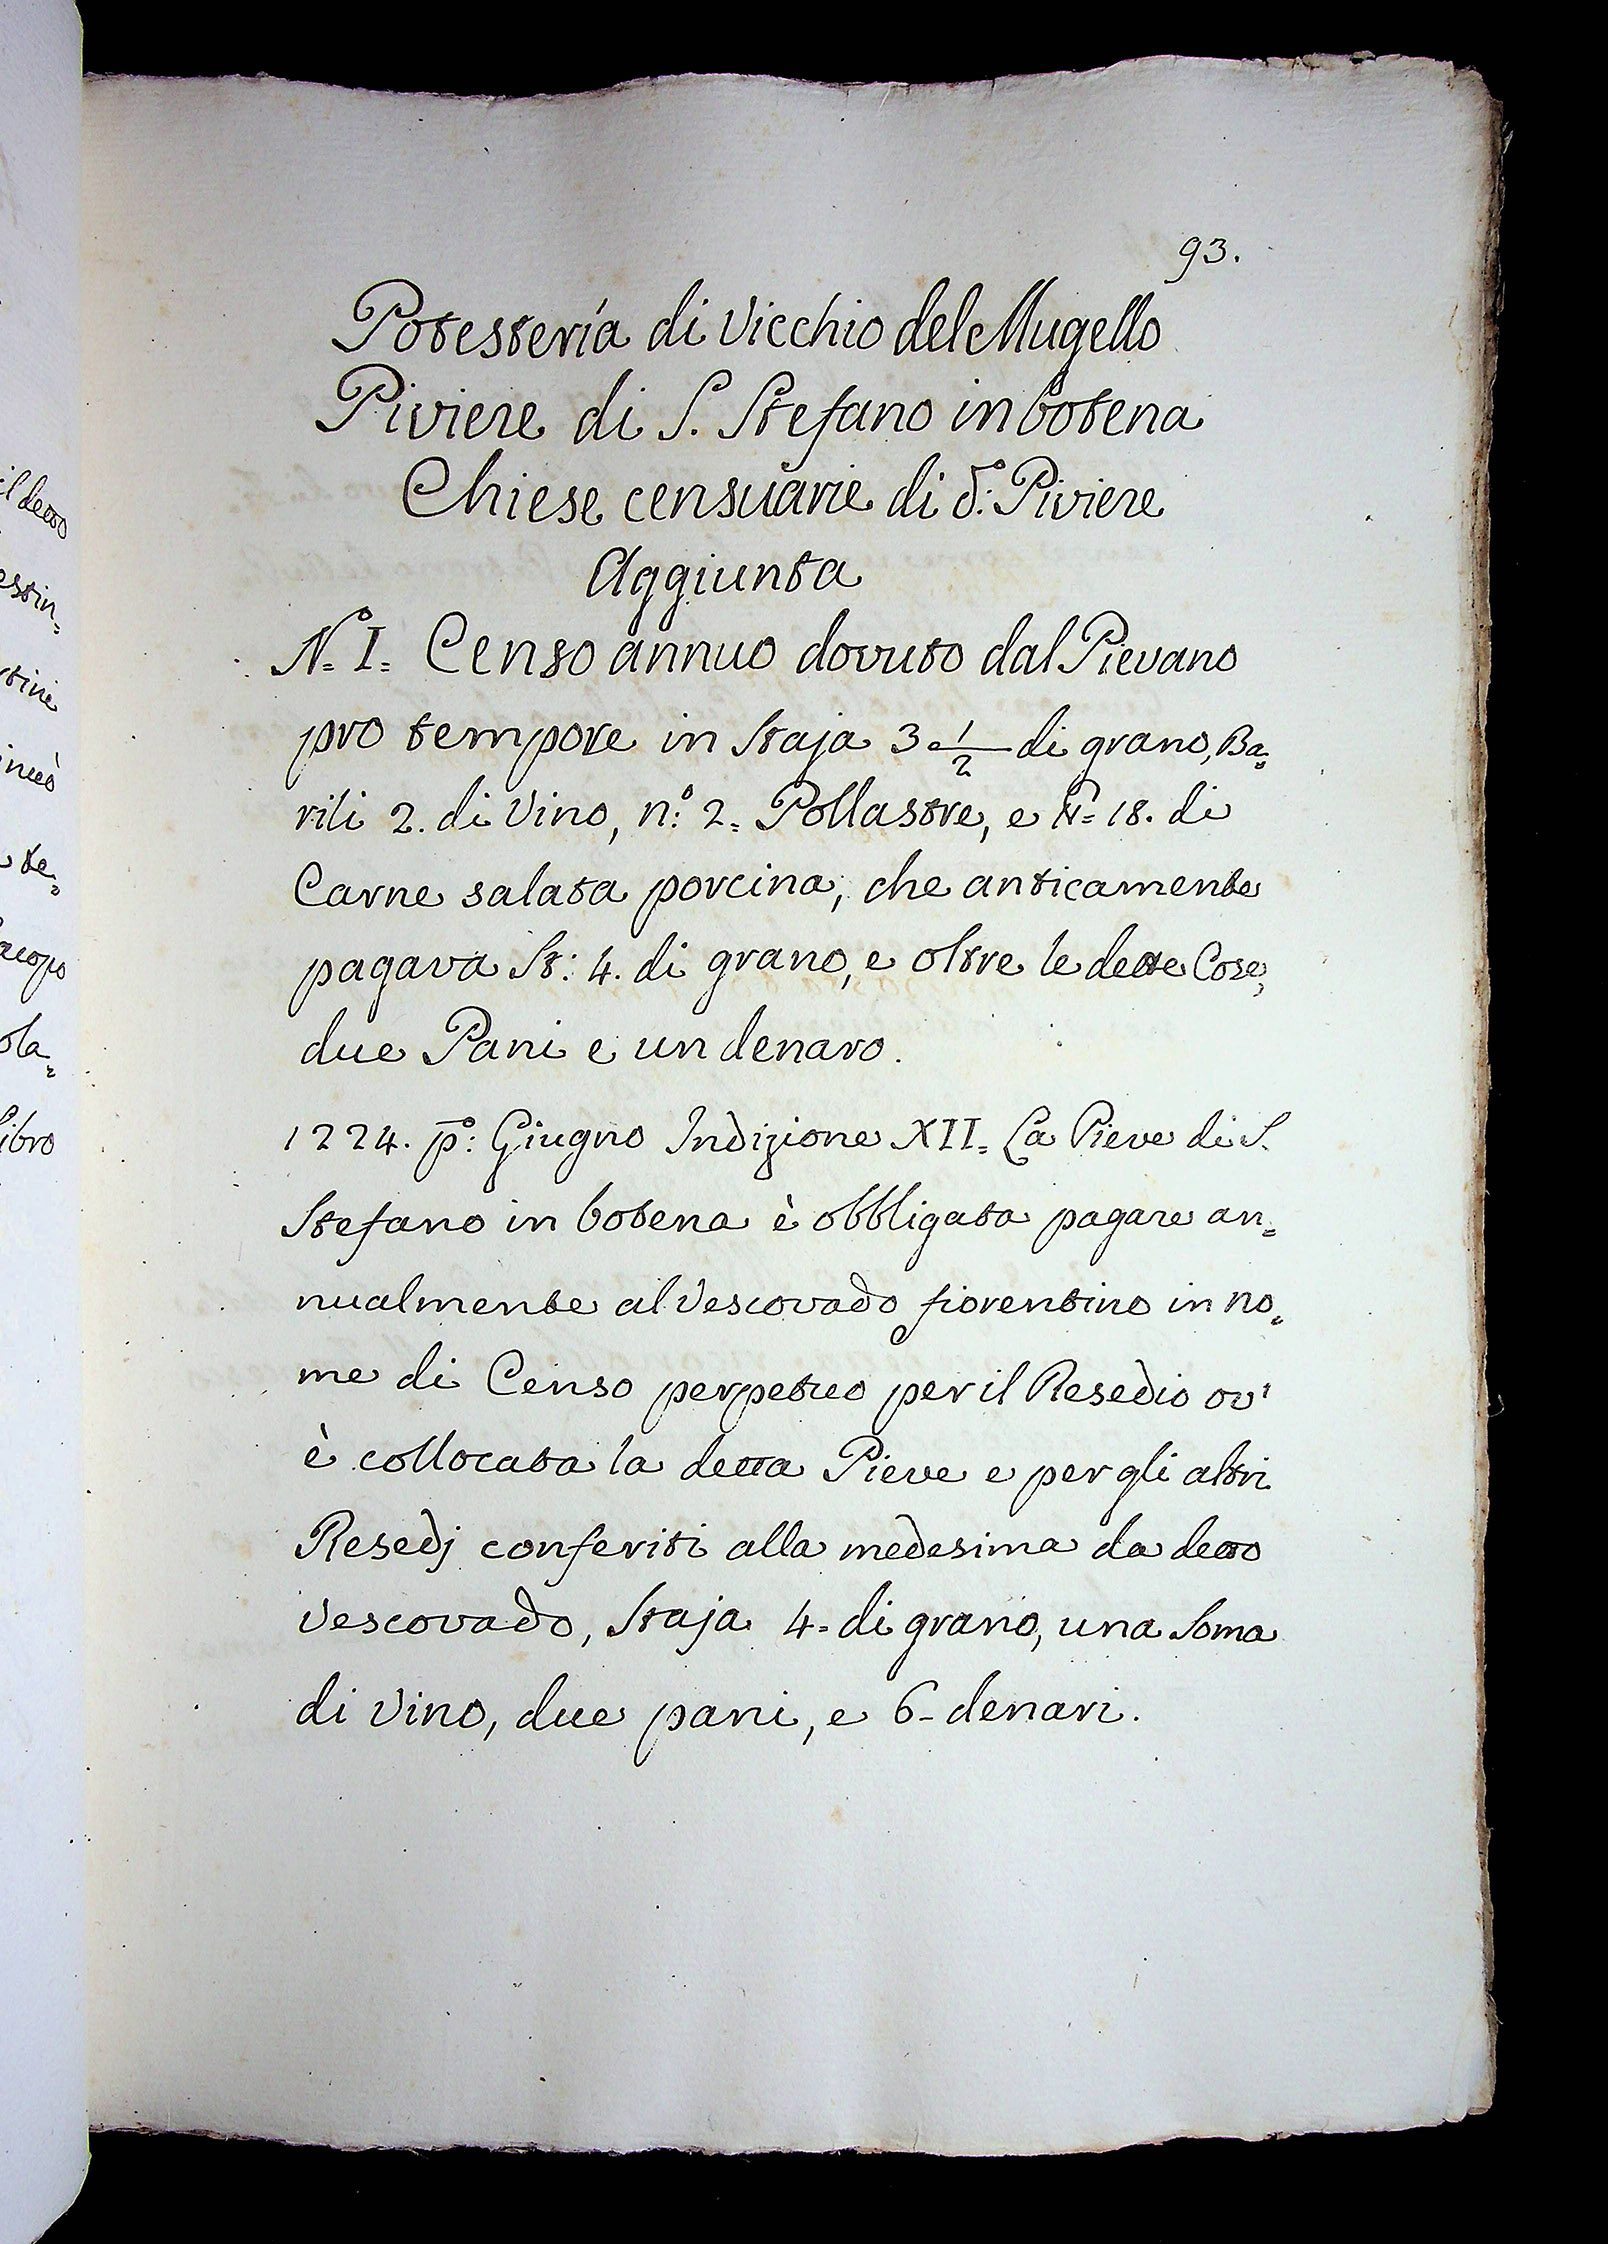 il detto
estin=
stini
inuò
te=
acopo
ola=
libro
93.
Potestería di Vicchio del Mugello
Piviere di S. Stefano in botena
Chiese censuarie di d.° Piviere
Aggiunta
N.° I. Censo annuo dovuto dal Pievano
pro tempore in Staja 3 1/2 di grano, Ba=
rili 2. di Vino, n.° 2. Pollastre, e 18. di
Carne salata porcina, che anticamente
pagava St: 4. di grano, e oltre le dette Cose,
due Pani e un denaro.
1224. p.° Giugno Indizione XII. La Pieve di S.
Stefano in botena è obbligata pagare an=
nualmente al Vescovado fiorentino in no=
me di Censo perpetuo per il Resedio ov'
è collocata la detta Pieve e per gli altri
Resedj conferiti alla medesima da detto
Vescovado, Staja 4. di grano, una Soma
di Vino, due pani, e 6. denari.